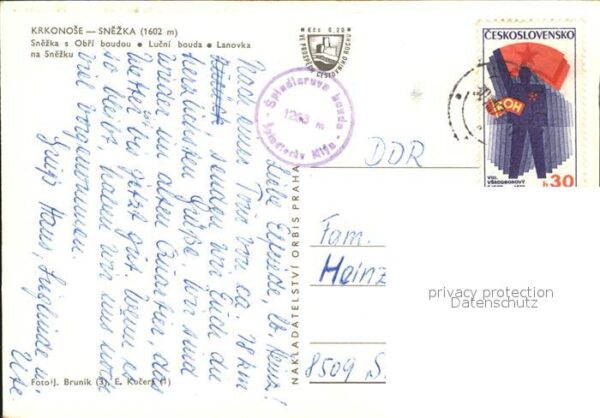 KRKONOŠE — SNĚŽKA (1602 m)
Sněžka s Obří boudou • Luční bouda • Lanovka
na Sněžku
Kčs 0,20
VE PROSPĚCH CESTOVNÍHO RUCHU
ČESKOSLOVENSKO
ROH
VIII.
VŠEODBOROVÝ
h 30
Špindlerova bouda
m
Špindlerův Mlýn
DDR
Fam.
Heinz
8509 S.
NAKLADATELSTVÍ ORBIS PRAHA
Liebe Elfriede, lb. Heinz!
Nach einer Tour von ca. 18 km
senden wir Euch die
herzlichsten Grüße. Wir sind
wieder im alten Quartier, das
Wetter bis jetzt gut. Wenn es
so bleibt, haben wir uns noch
viel vorgenommen.
Grüße Hans, Sieglinde u.
Ute
Foto: J. Bruník (3), E. Kučera (1)
privacy protection
Datenschutz